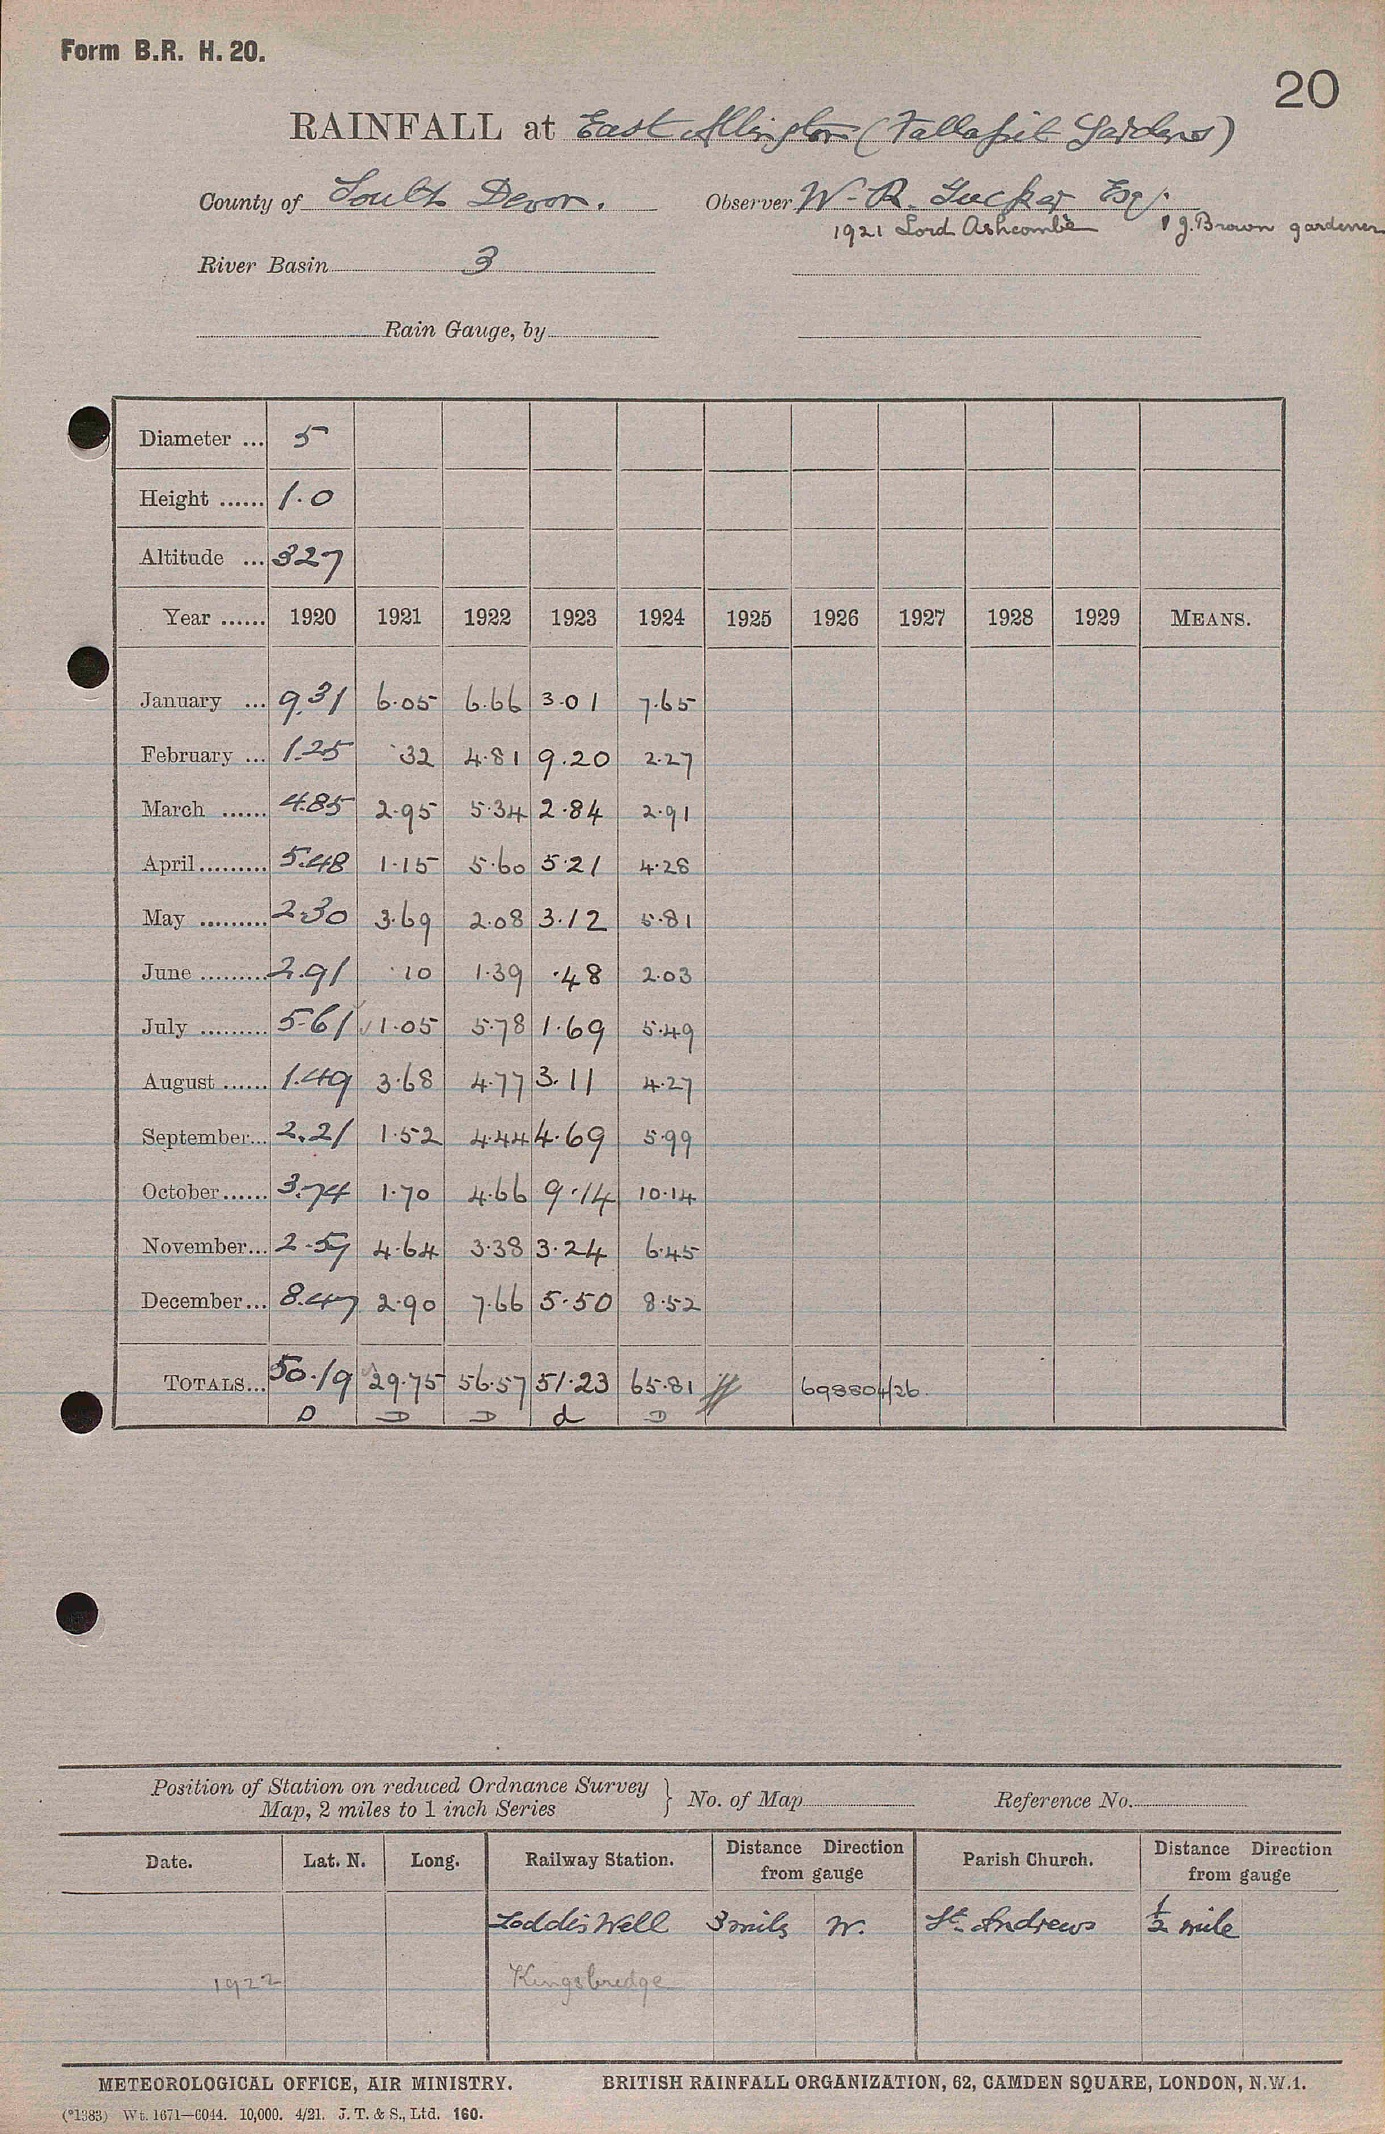 Form B.R. H. 20.
20
RAINFALL at East Allington (Fallapit Gardens)
County of South Devon. Observer W. R. Tucker Esq.
1921 Lord Ashcombe J. Brown gardener
River Basin 3
Rain Gauge, by
Diameter ... 5
Height ...... 1.0
Altitude ... 327
Year ...... 1920 1921 1922 1923 1924 1925 1926 1927 1928 1929 MEANS.
January ... 9.31 6.05 6.66 3.01 7.65
February ... 1.25 .32 4.81 9.20 2.27
March ...... 4.85 2.95 5.34 2.84 2.91
April ......... 5.48 1.15 5.60 5.21 4.28
May ......... 2.30 3.69 2.08 3.12 5.81
June ......... 2.91 .10 1.39 .48 2.03
July ......... 5.61 1.05 5.78 1.69 5.49
August ...... 1.49 3.68 4.77 3.11 4.27
September... 2.21 1.52 4.44 4.69 5.99
October...... 3.74 1.70 4.66 9.14 10.14
November... 2.57 4.64 3.38 3.24 6.45
December... 8.47 2.90 7.66 5.50 8.52
TOTALS... 50.19 29.75 56.57 51.23 65.81 698804/26
D D D d D
Position of Station on reduced Ordnance Survey
Map, 2 miles to 1 inch Series } No. of Map Reference No.
Date. Lat. N. Long. Railway Station. Distance Direction from gauge Parish Church. Distance Direction from gauge
Loddiswell 3 miles W. St. Andrews ½ mile
1922 Kingsbridge
METEOROLOGICAL OFFICE, AIR MINISTRY. BRITISH RAINFALL ORGANIZATION, 62, CAMDEN SQUARE, LONDON, N.W.1.
(*1383) Wt. 1671—6044. 10,000. 4/21. J. T. & S., Ltd. 160.